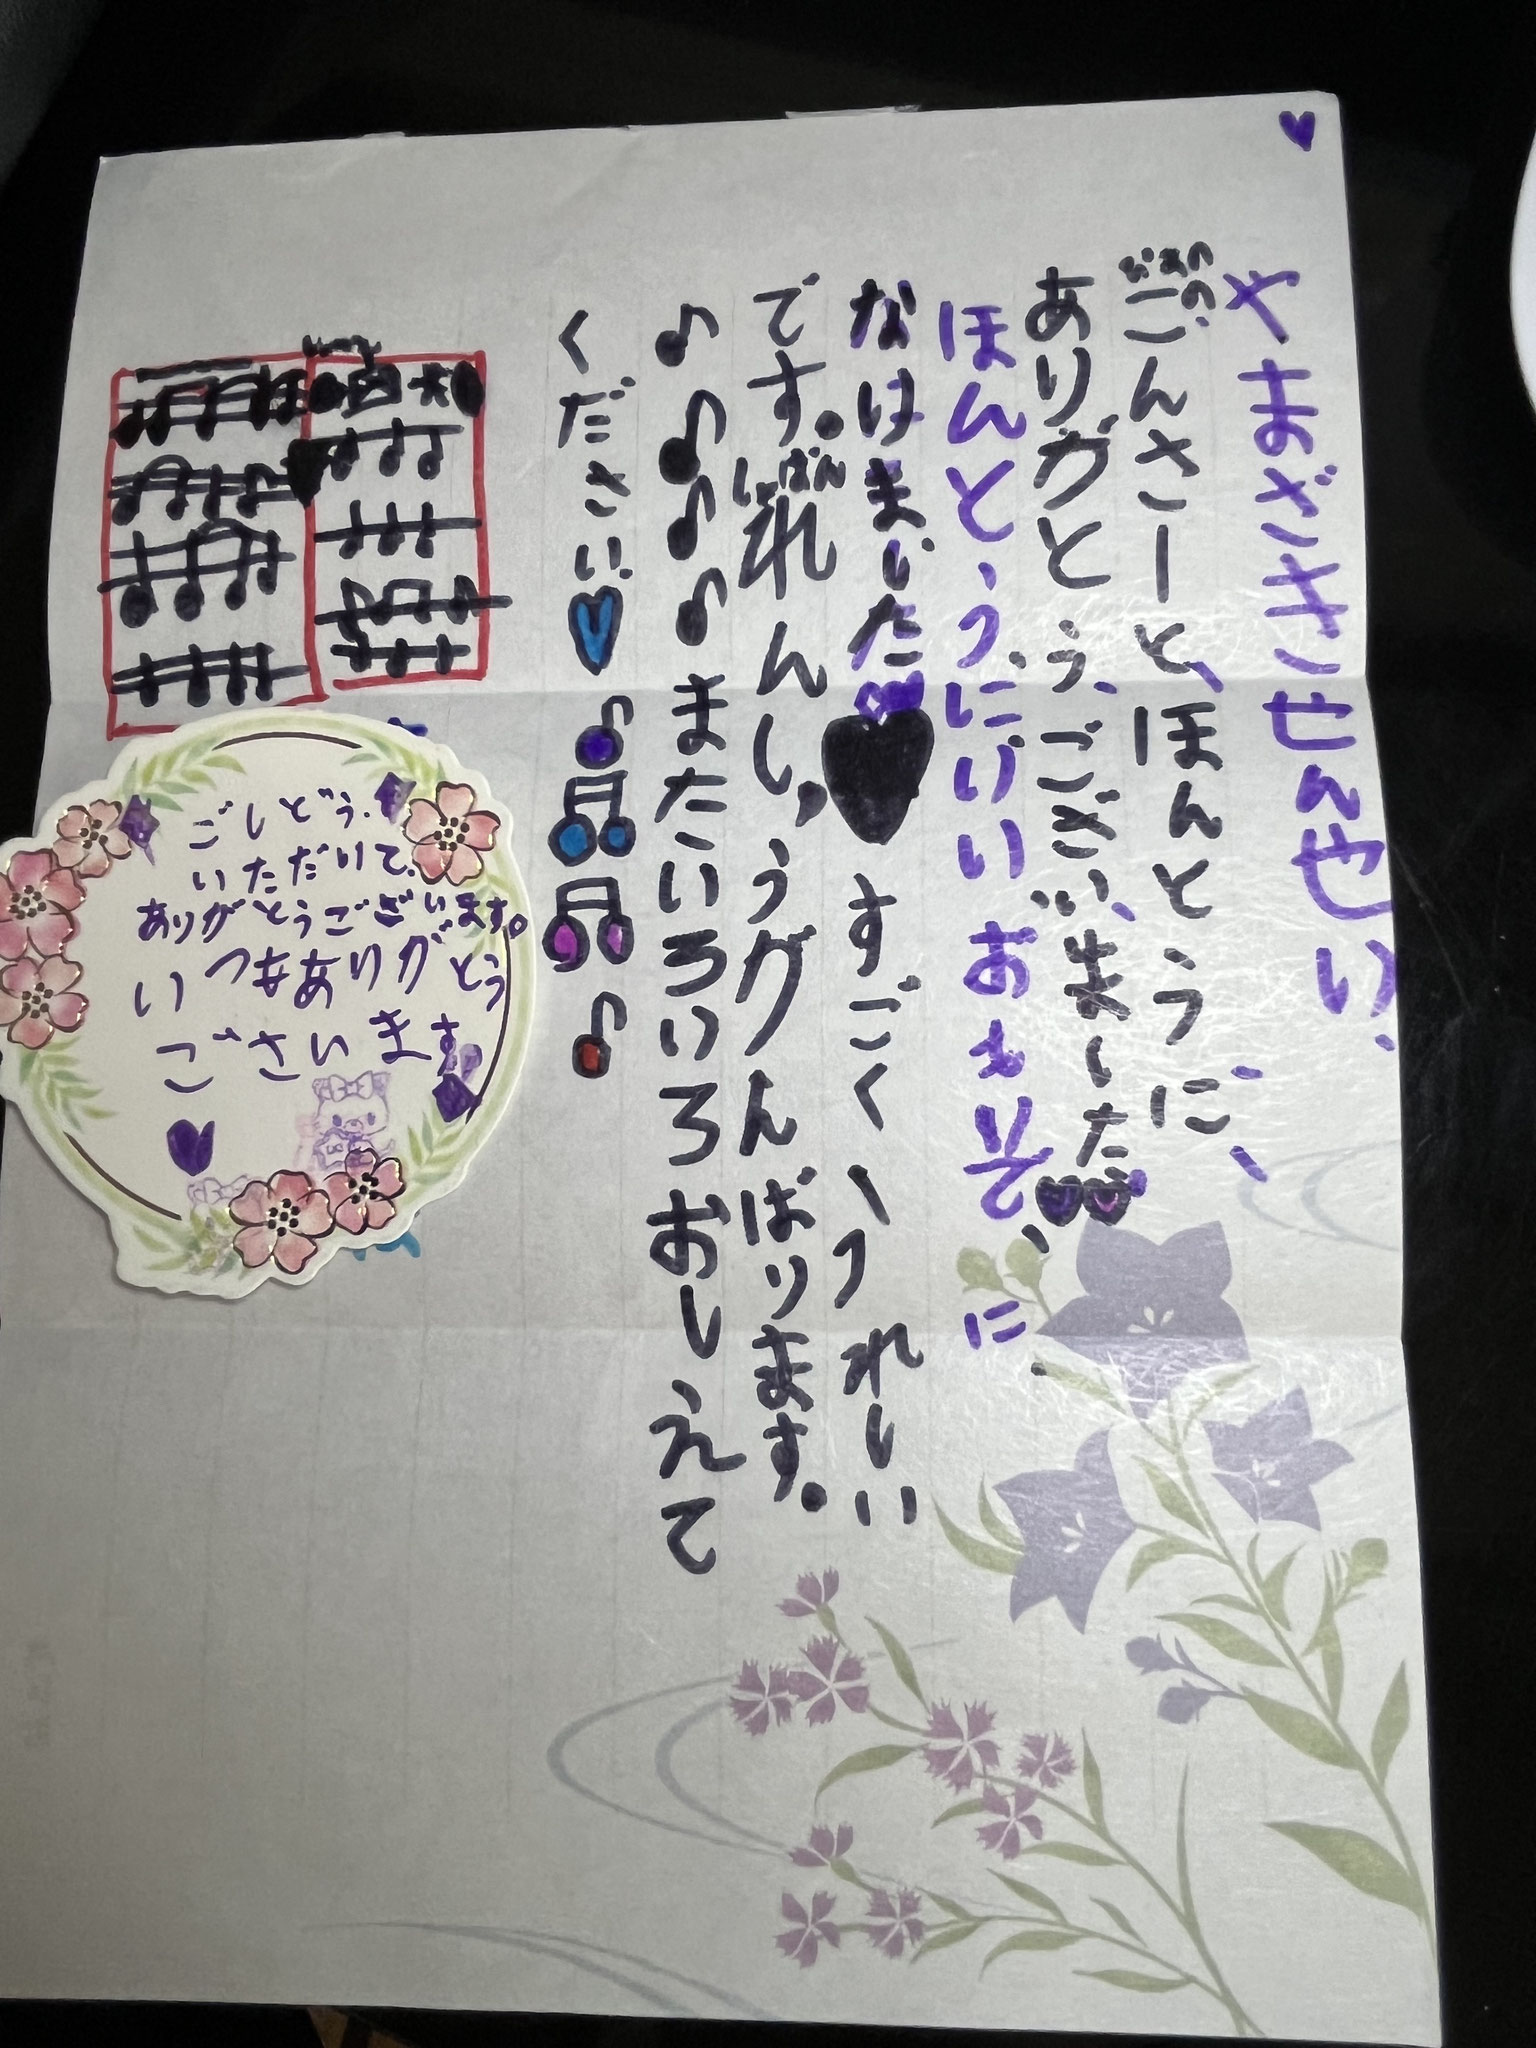 やまざきせんせい
ごんさーとほんとうに、
ありがとう、ございました
ほんとう、にいいおもいで、に
なはました すごくうれしい
です。れんしゅうがんばります。
またいろいろおしえて
ください
ごしどう、
いただいて、
ありがとうございます。
いつもありがとう
ございます